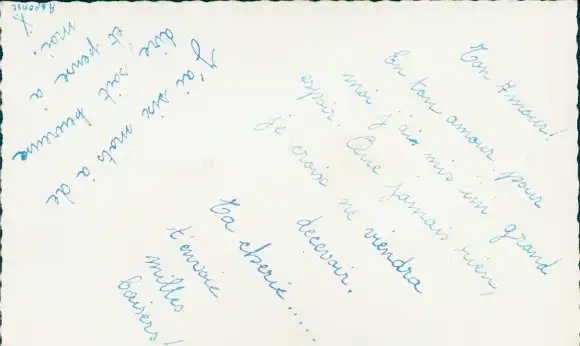 Ton Amour!
En ton amour pour
moi j'ai mis un grand
espoir. Que jamais rien,
je crois ne viendra
decevoir.
Ta cherie......
t'envoie
milles
baisers!
J'ai six mots à de
dire, soit heureuse
et pense à
moi.